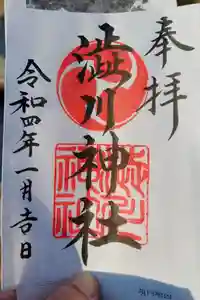 奉拝
澁川神社
令和四年一月吉日